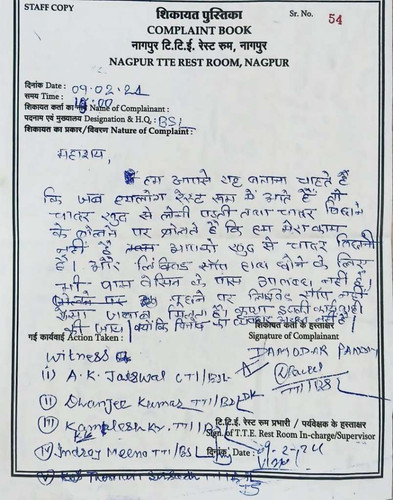 STAFF COPY
शिकायत पुस्तिका
Sr. No. 54
COMPLAINT BOOK
नागपुर टि.टि.ई. रेस्ट रूम, नागपुर
NAGPUR TTE REST ROOM, NAGPUR
दिनांक Date : 09.02.24
समय Time : :00
शिकायत कर्ता का Name of Complainant :
पदनाम एवं मुख्यालय Designation & H.Q. : BSL
शिकायत का प्रकार/विवरण Nature of Complaint :
महाशय,
हम आपसे यह बताना चाहते हैं
कि जब हमलोग रेस्ट रूम में आते हैं तो
चादर खुद से लेनी पड़ती तथा चादर बिछाने
के बोलने पर बोलते है कि हम मेरा काम
नहीं है आपको खुद से चादर
है। और लिक्विड सोप हाथ धोने के लिए
भी वास बेसिन के पास नहीं है।
पूछने पर लिक्विड सोप नहीं
ऐसा जवाब मिलता है। कृपया इसकी
की जाय। क्योंकि नहीं है।
शिकायत कर्ता के हस्ताक्षर
गई कार्यवाई Action Taken :
Signature of Complainant
Witness
DAMODAR PANDIT
(i) A.K. Jaiswal CTI/BSL
TTI/BSL
(ii) Dhanjee Kumar TTI/BSL
(iii) Kamlesh Kr. TTI/BSL
टि.टि.ई. रेस्ट रूम प्रभारी / पर्यवेक्षक के हस्ताक्षर
Sign. of T.T.E. Rest Room In-charge/Supervisor
(iv) Indraj Meena TTI/BSL
दिनांक Date : 09-2-24
(v)